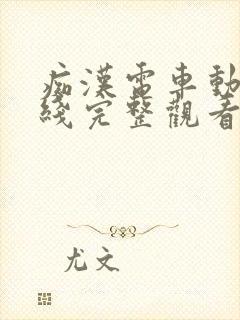 痴漢電車動
綫完整觀看
尤文